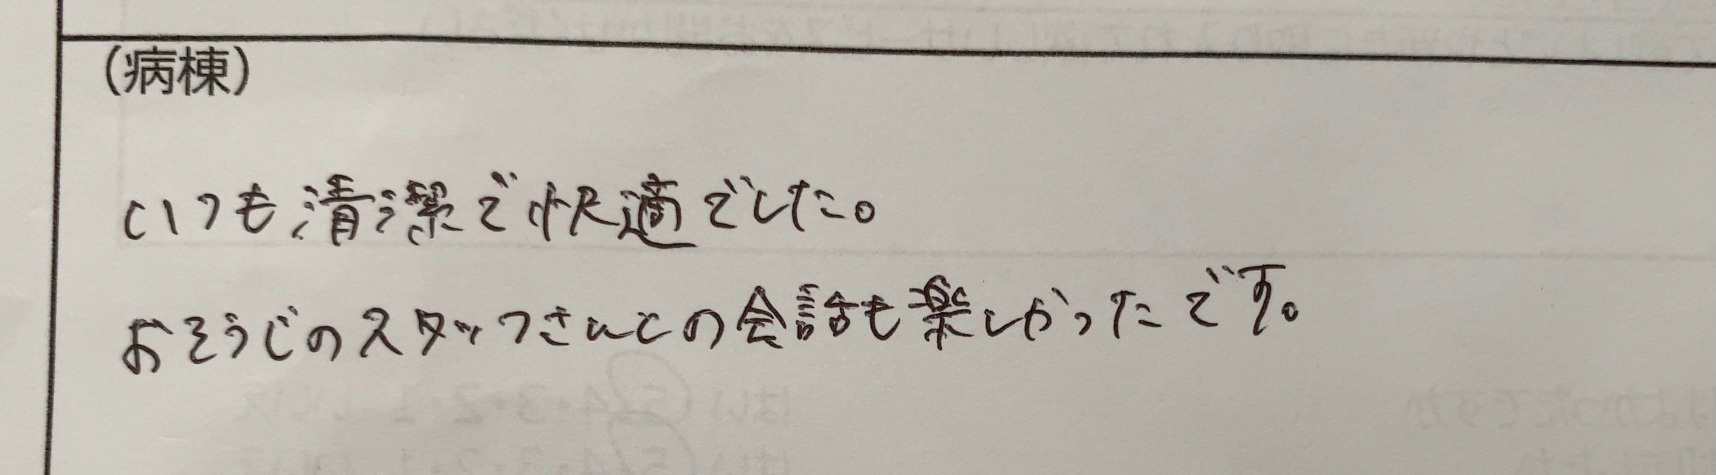 (病棟)
いつも清潔で快適でした。
おそうじのスタッフさんとの会話も楽しかったです。